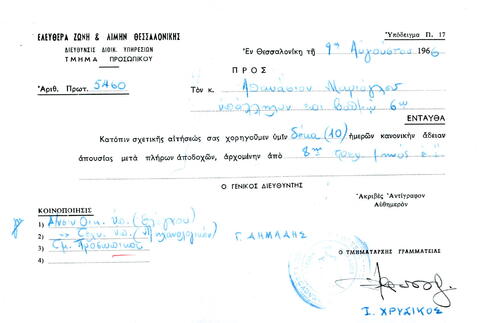 ΕΛΕΥΘΕΡΑ ΖΩΝΗ & ΛΙΜΗΝ ΘΕΣΣΑΛΟΝΙΚΗΣ
ΔΙΕΥΘΥΝΣΙΣ ΔΙΟΙΚ. ΥΠΗΡΕΣΙΩΝ
ΤΜΗΜΑ ΠΡΟΣΩΠΙΚΟΥ
Ὑπόδειγμα Π. 17
Ἐν Θεσσαλονίκῃ τῇ 9ῃ Αὐγούστου 1966
Ἀριθ. Πρωτ. 5460
ΠΡΟΣ
Τὸν κ. Ἀθανάσιον
ὑπάλληλον ἐπὶ βαθμῷ 6ῳ
ΕΝΤΑΥΘΑ
Κατόπιν σχετικῆς αἰτήσεώς σας χορηγοῦμεν ὑμῖν δέκα (10) ἡμερῶν κανονικὴν ἄδειαν
ἀπουσίας μετὰ πλήρων ἀποδοχῶν, ἀρχομένην ἀπὸ 8ης τρέχ. μηνὸς ἐ.ἔ.
Ο ΓΕΝΙΚΟΣ ΔΙΕΥΘΥΝΤΗΣ
Ἀκριβὲς Ἀντίγραφον
Αὐθημερόν
ΚΟΙΝΟΠΟΙΗΣΙΣ
1) Δ/νσιν Οἰκ. ὑπ. (Ἐλέγχου)
2) -»- Τεχν. ὑπ. (Μηχανολογικὴν)
3) Τμ. Προσωπικοῦ
4)
Γ. ΔΗΜΑΔΗΣ
Ο ΤΜΗΜΑΤΑΡΧΗΣ ΓΡΑΜΜΑΤΕΙΑΣ
Ι. ΧΡΥΣΙΚΟΣ